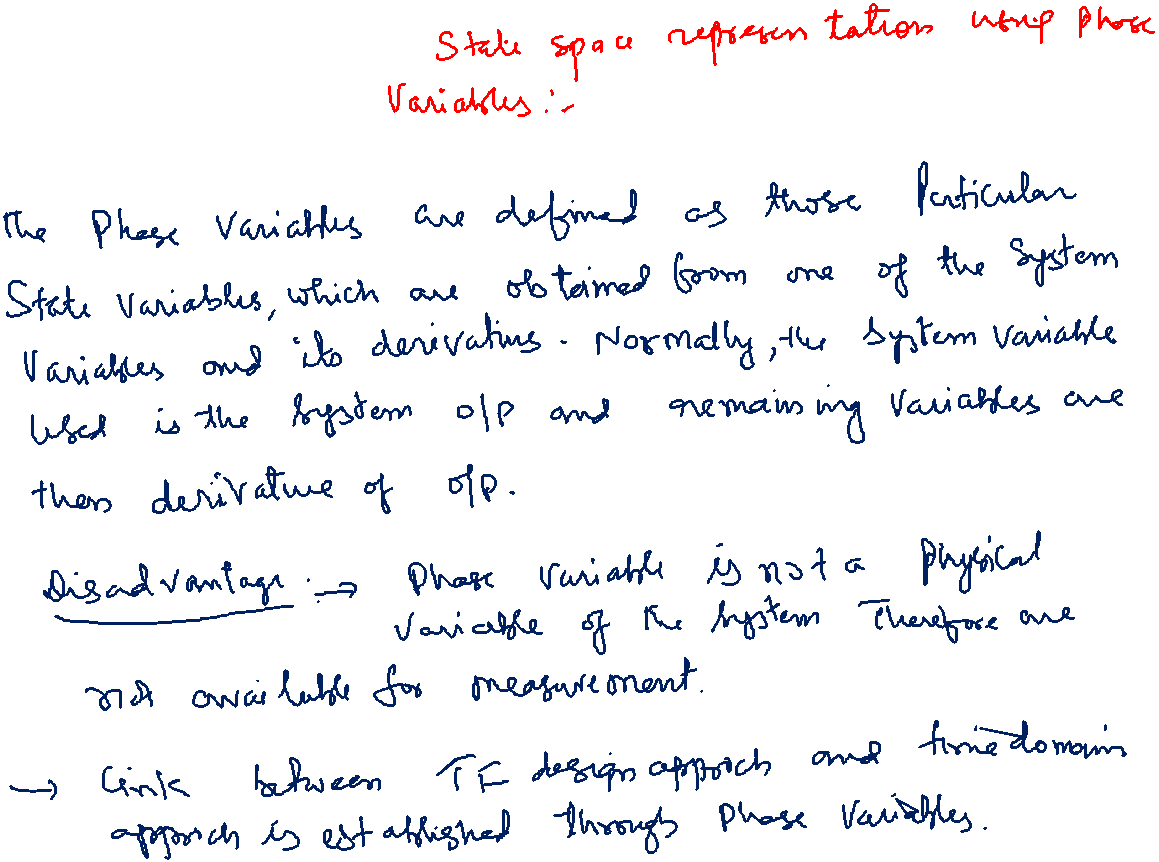 State space representation using phase
Variables :-
The Phase Variables are defined as those Particular
State Variables, which are obtained from one of the System
Variables and its derivatives. Normally, the System Variable
Used is the System o/p and remaining Variables are
then derivative of o/p.
Disadvantage :→ Phase Variable is not a Physical
Variable of the System Therefore are
not available for measurement.
→ Link between TF design approch and time domain
approch is established through Phase Variables.